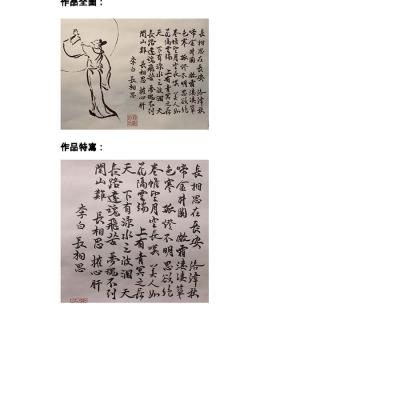 作品全圖：
長相思在長安 絡緯秋
啼金井闌 微霜淒淒簟
色寒 孤燈不明思欲絕
卷帷望月空長歎 美人如
花隔雲端 上有青冥之長
天 下有淥水之波瀾 天
長路遠魂飛苦 夢魂不到
關山難 長相思 摧心肝
李白 長相思
作品特寫：
長相思在長安 絡緯秋
啼金井闌 微霜淒淒簟
色寒 孤燈不明思欲絕
卷帷望月空長歎 美人如
花隔雲端 上有青冥之長
天 下有淥水之波瀾 天
長路遠魂飛苦 夢魂不到
關山難 長相思 摧心肝
李白 長相思